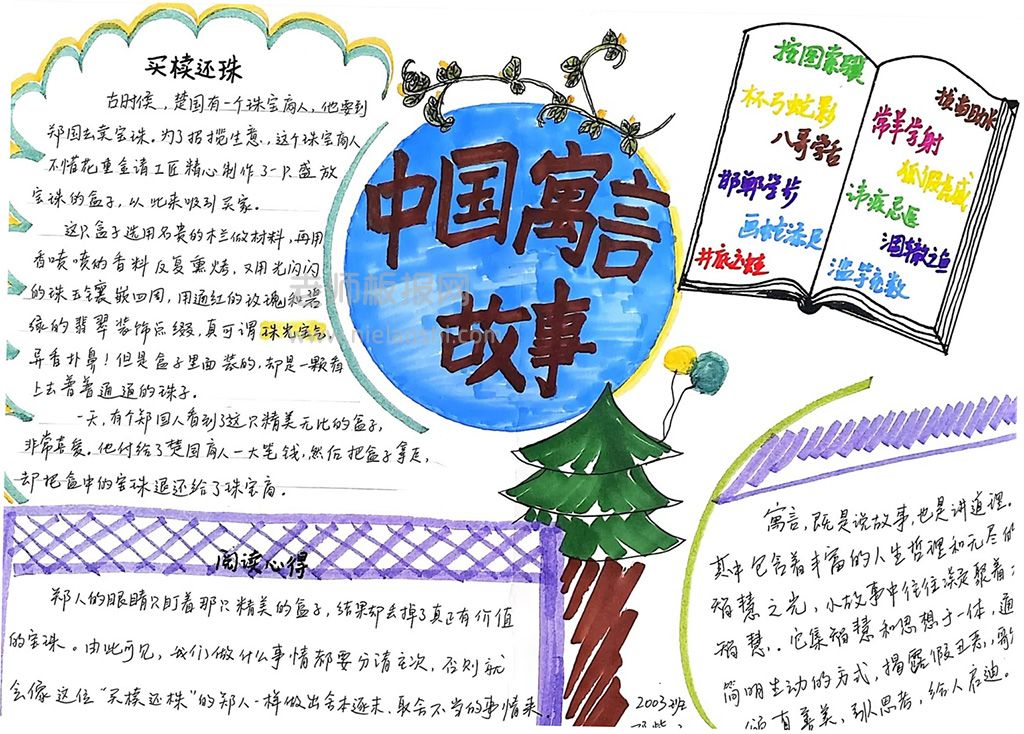 买椟还珠
古时侯，楚国有一个珠宝商人，他要到
郑国去卖宝珠。为了招揽生意，这个珠宝商人
不惜花重金请工匠精心制作了一只盛放
宝珠的盒子，以此来吸引买家。
这只盒子选用名贵的木兰做材料，再用
香喷喷的香料反复熏烤，又用光闪闪
的珠玉镶嵌四周，用通红的玫瑰和碧
绿的翡翠装饰点缀，真可谓珠光宝气，
异香扑鼻！但是盒子里面装的，却是一颗看
上去普普通通的珠子。
一天，有个郑国人看到了这只精美无比的盒子，
非常喜爱。他付给了楚国商人一大笔钱，然后把盒子拿走，
却把盒中的宝珠退还给了珠宝商。
中国寓言
故事
老师板报网
www.nielaoshi.com
按图索骥
杯弓蛇影
八哥学舌
邯郸学步
画蛇添足
井底之蛙
拔苗助长
常羊学射
狐假虎威
讳疾忌医
涸辙之鱼
滥竽充数
阅读心得
郑人的眼睛只盯着那只精美的盒子，结果却丢掉了真正有价值
的宝珠。由此可见，我们做什么事情都要分清主次，否则就
会像这位“买椟还珠”的郑人一样做出舍本逐末、取舍不当的事情来。
寓言，既是说故事，也是讲道理。
其中包含着丰富的人生哲理和无尽的
智慧之光，小故事中往往凝聚着大
智慧。它集智慧和思想于一体，通
简明生动的方式，揭露假丑恶，歌
颂真善美，引人思考，给人启迪。
2003班